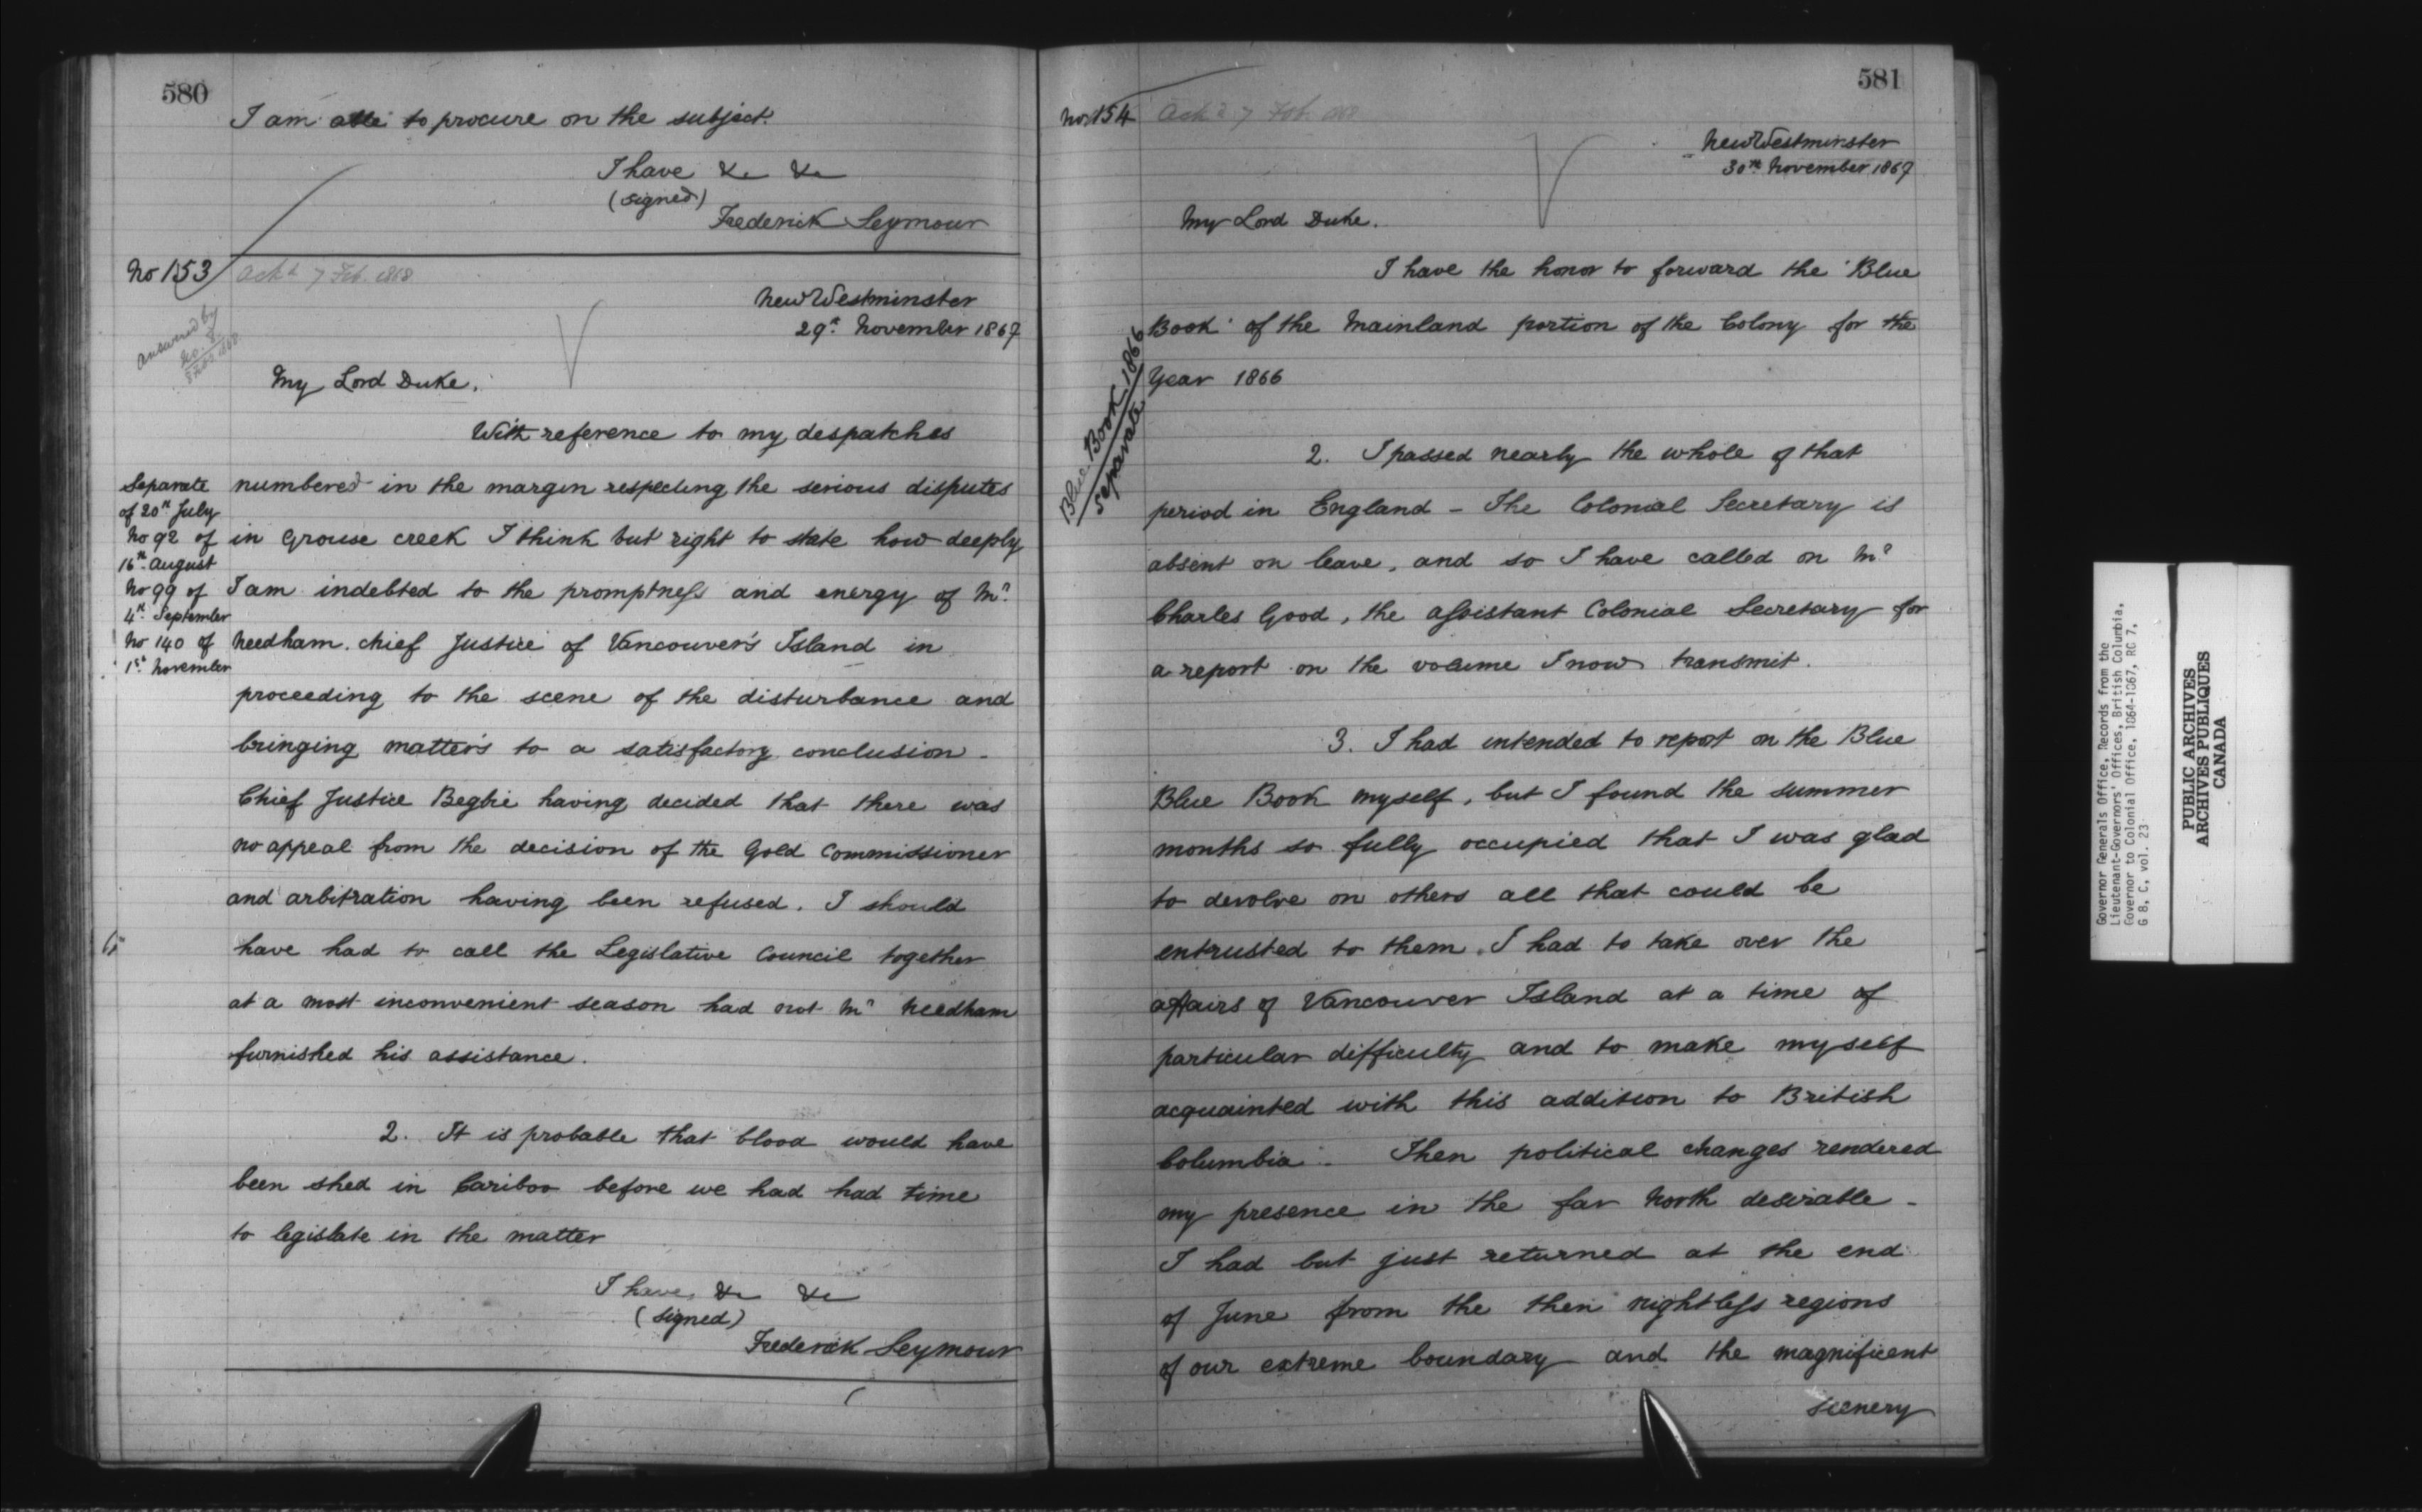 580
I am able to procure on the subject.
I have &c &c
(signed)
Frederick Seymour
No 153
Ackd 7 Feb. 1868
Answered by
No. 8
New Westminster
29th November 1867
My Lord Duke,
With reference to my despatches
Separate
of 20th July
No 92 of
16th August
No 99 of
4th September
No 140 of
1st November
numbered in the margin respecting the serious disputes
in Grouse creek I think but right to state how deeply
I am indebted to the promptness and energy of Mr
Needham. Chief Justice of Vancouver's Island in
proceeding to the scene of the disturbance and
bringing matters to a satisfactory conclusion -
Chief Justice Begbie having decided that there was
no appeal from the decision of the Gold Commissioner
and arbitration having been refused. I should
have had to call the Legislative Council together
at a most inconvenient season had not Mr Needham
furnished his assistance.
2. It is probable that blood would have
been shed in Cariboo before we had had time
to legislate in the matter
I have &c &c
(signed)
Frederick Seymour
581
No 154
Ackd 7 Feb. 1868
New Westminster
30th November 1867
My Lord Duke.
Blue Book 1866
Separate
I have the honor to forward the 'Blue
Book' of the Mainland portion of the Colony for the
Year 1866
2. I passed nearly the whole of that
period in England - The Colonial Secretary is
absent on leave, and so I have called on Mr
Charles Good, the Assistant Colonial Secretary for
a report on the volume I now transmit.
3. I had intended to report on the Blue
Blue Book myself, but I found the summer
months so fully occupied that I was glad
to devolve on others all that could be
entrusted to them. I had to take over the
affairs of Vancouver Island at a time of
particular difficulty and to make myself
acquainted with this addition to British
Columbia. Then political changes rendered
my presence in the far North desirable -
I had but just returned at the end
of June from the then nightless regions
of our extreme boundary and the magnificent
scenery
Governor Generals Office, Records from the
Lieutenant-Governors' Offices, British Columbia,
Governor to Colonial Office, 1864-1867, RG 7,
G 8, C, vol. 23
PUBLIC ARCHIVES
ARCHIVES PUBLIQUES
CANADA